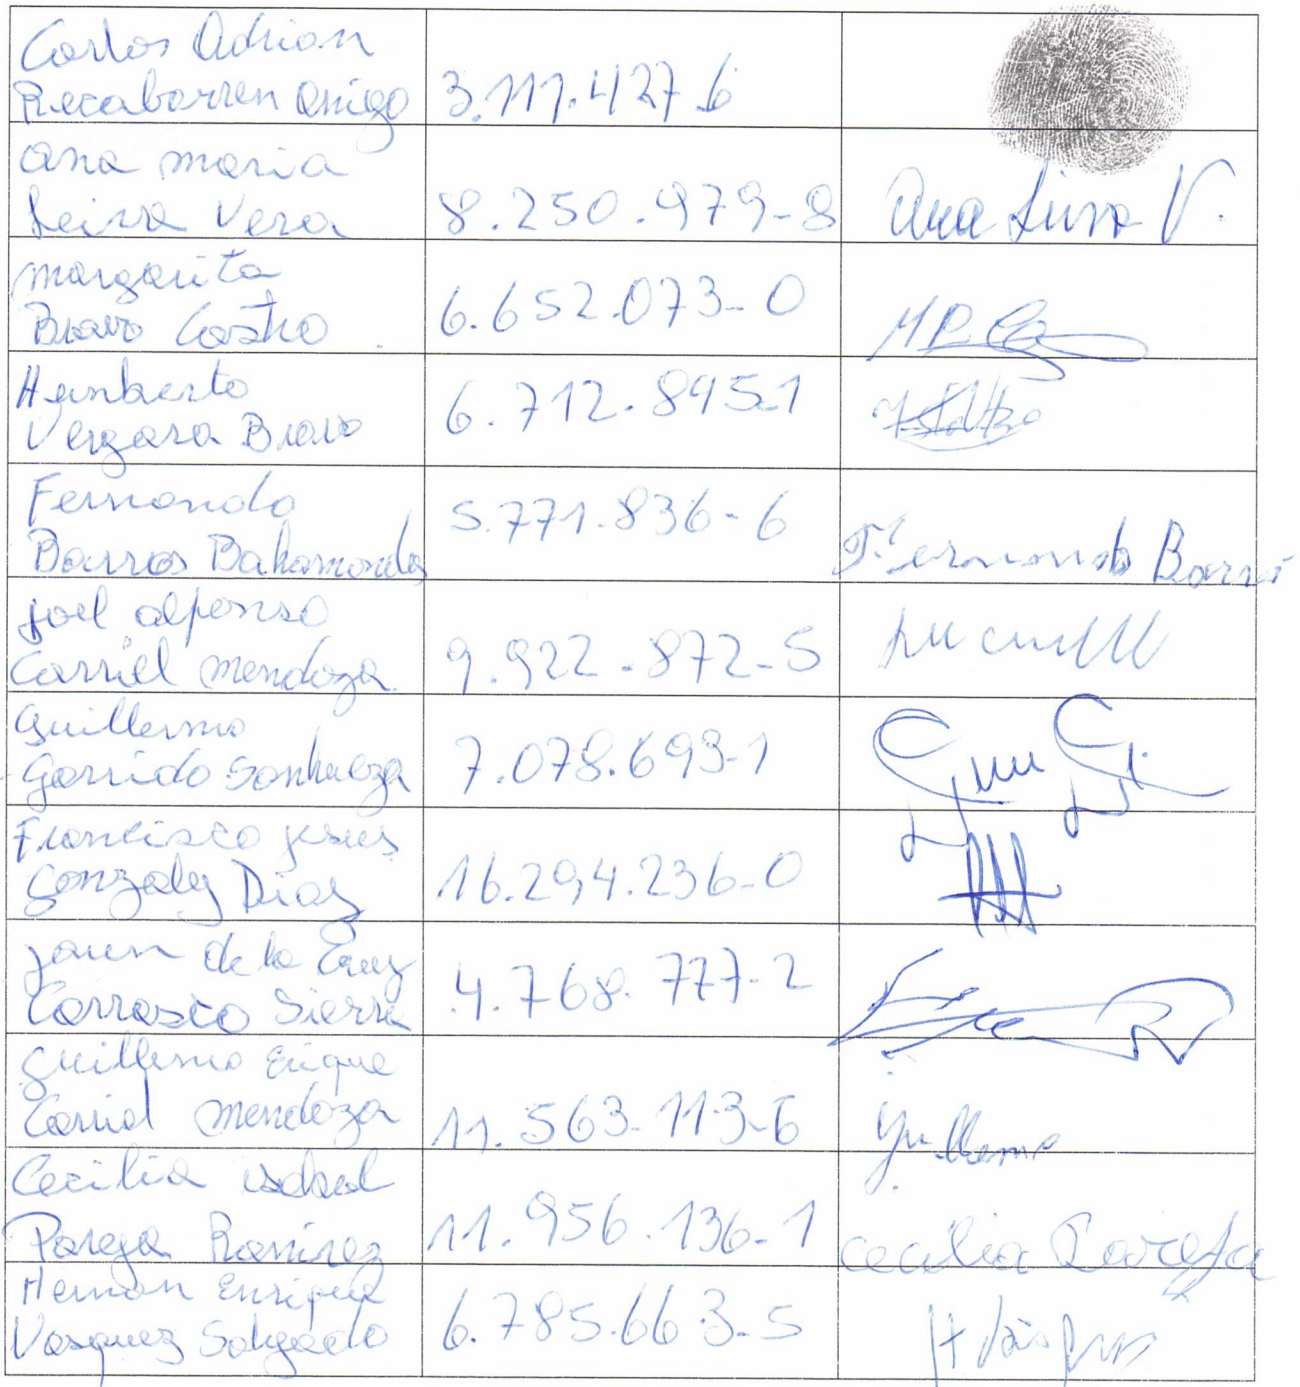 Carlos Adrian
Recabarren Amigo 3.111.427-6
Ana maria
Leiva Vera 8.250.979-8 Ana Leiva V.
margarita
Bravo Castro 6.652.073-0
Humberto
Vergara Bravo 6.712.895-1
Fernando
Barros Bahamondes 5.771.836-6 Fernando Barros
Joel alfonso
Carriel mendoza 9.922.872-5
Guillermo
Garrido Sanhueza 7.078.693-1
Francisco Jesus
Gonzalez Diaz 16.294.236-0
Juan de la Cruz
Carrasco Sierra 4.768.777-2
Guillermo Erique
Carriel mendoza 11.563.113-6 Guillermo
Cecilia isabel
Pareja Ramirez 11.956.136-1 Cecilia Pareja
Hernan Enrique
Vasquez Salgado 6.785.663-5